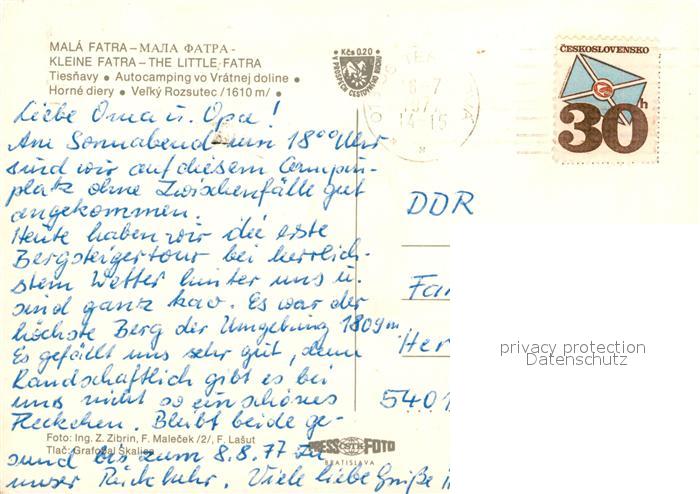 MALÁ FATRA – МАЛА ФАТРА -
KLEINE FATRA – THE LITTLE FATRA
Tiesňavy • Autocamping vo Vrátnej doline •
Horné diery • Veľký Rozsutec /1610 m/ •
Kčs 0.20
ČESKOSLOVENSKO
30h
14-15
Liebe Oma u. Opa!
Am Sonnabend um 18⁰⁰ Uhr
sind wir auf diesem Campin-
platz ohne Zwischenfälle gut
angekommen.
Heute haben wir die erste
Bergsteigertour bei herrlich-
stem Wetter hinter uns u.
sind ganz kav. Es war der
höchste Berg der Umgebung 1809m
Es gefällt uns sehr gut, denn
landschaftlich gibt es bei
uns nicht so ein schönes
Fleckchen. Bleibt beide ge-
sund bis zum 8.8.77 zu
unser Rückkehr. Viele liebe Grüße
DDR
Fam
Her
5401
privacy protection
Datenschutz
Foto: Ing. Z. Zibrin, F. Maleček /2/, F. Lašut
Tlač: Grafobal Skalica
PRESSFOTO
ČSTK
BRATISLAVA